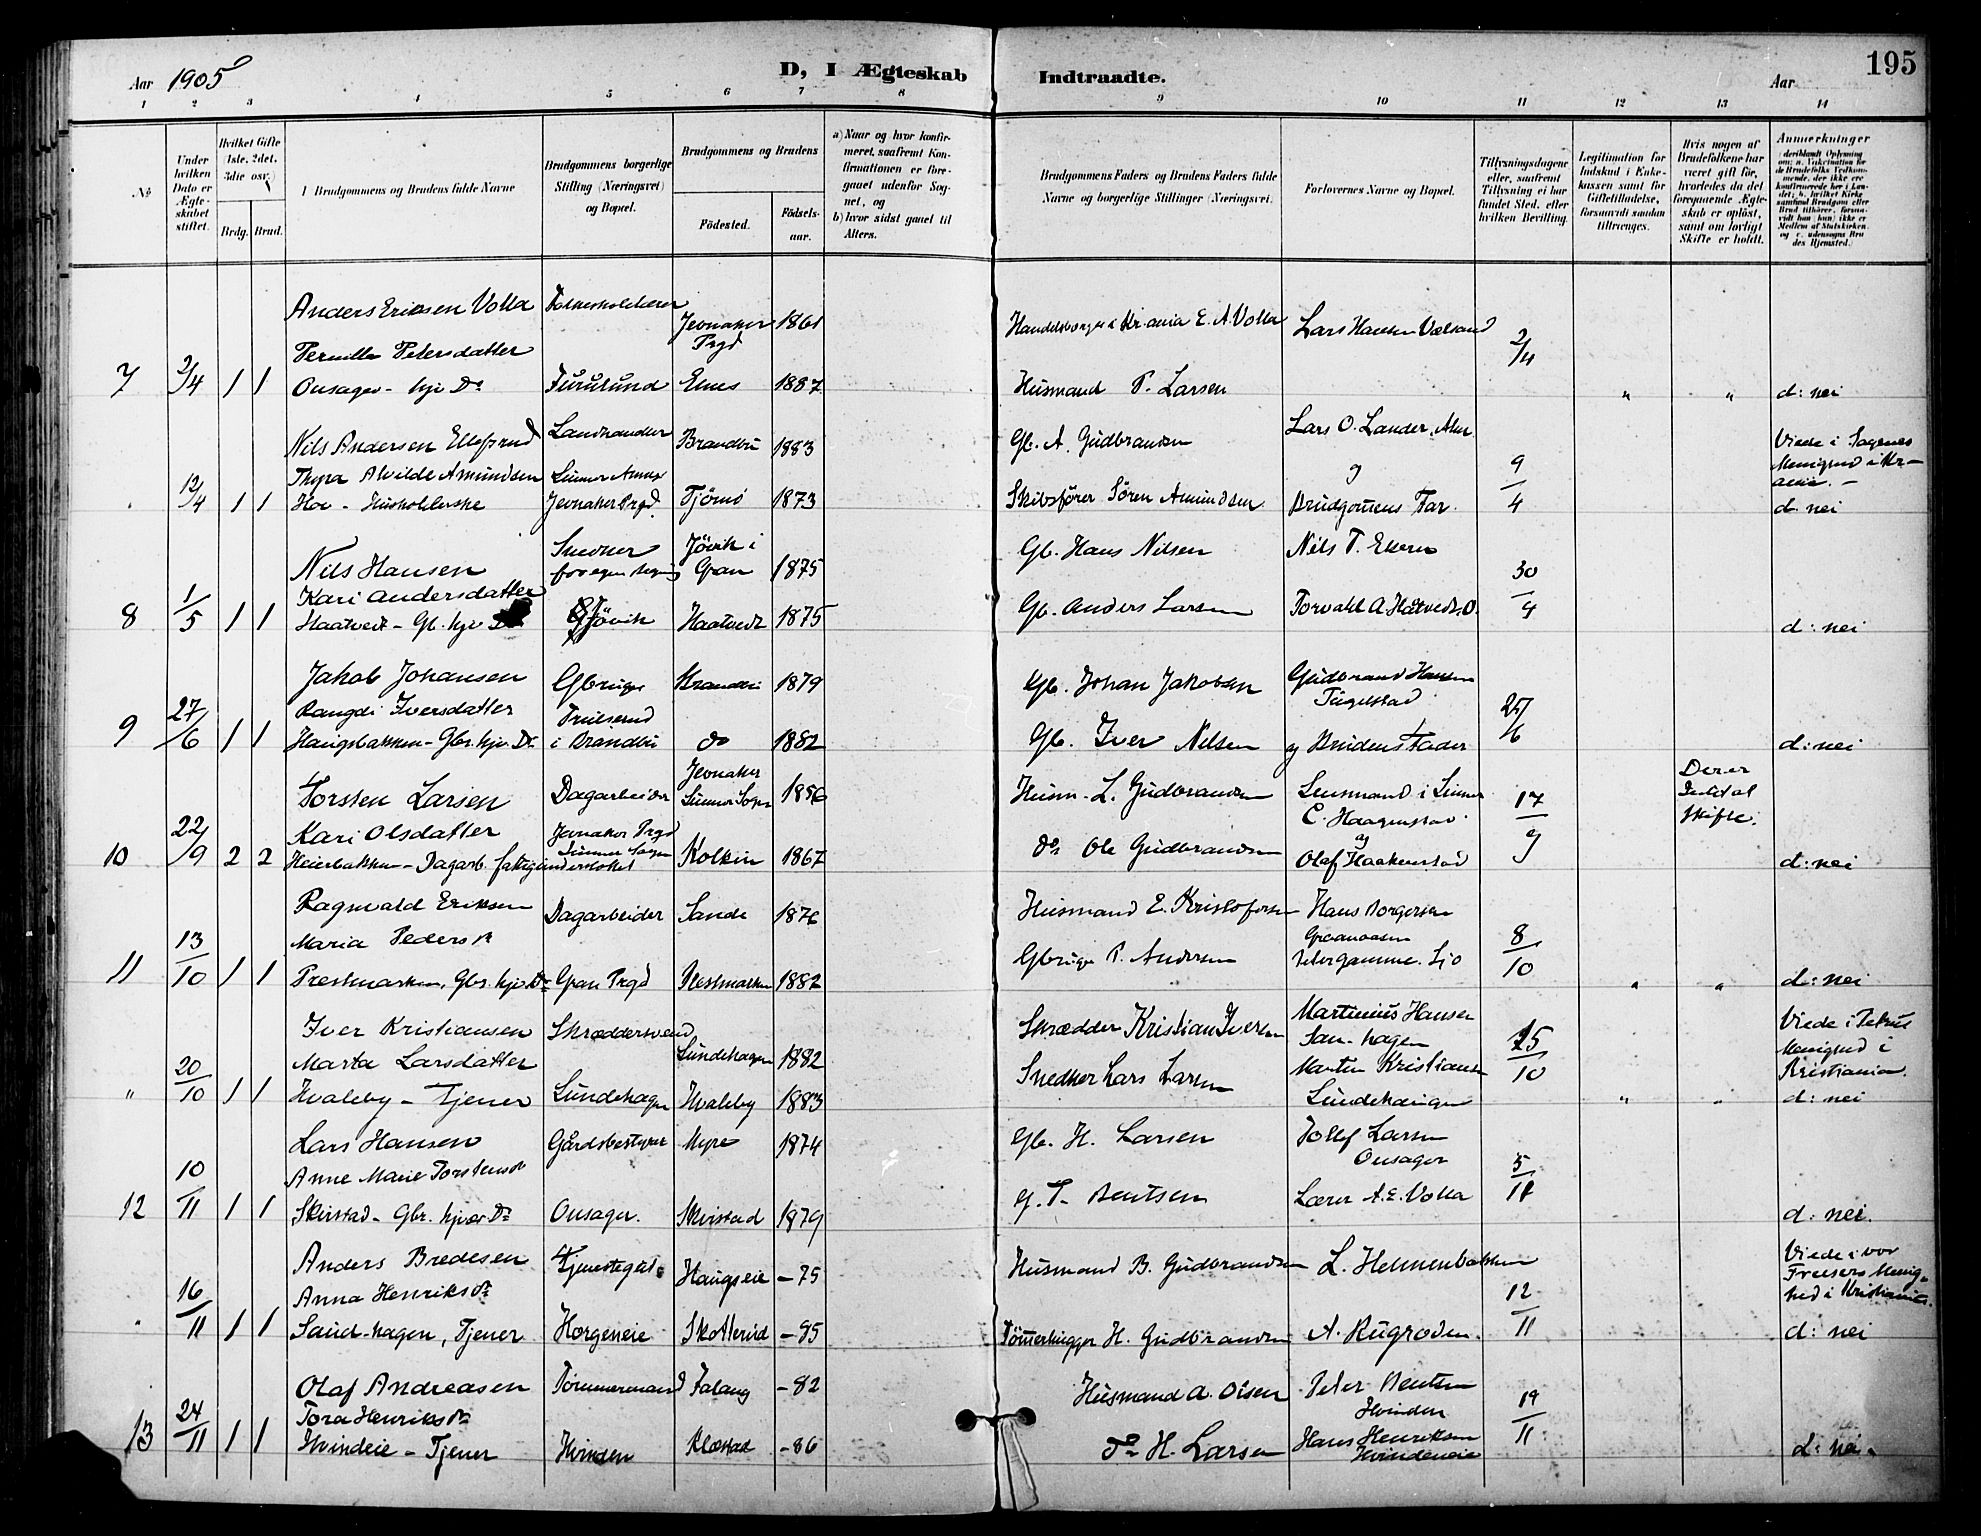 195
Aar 1905
D, I Ægteskab Indtraadte.
Aar
1 2 3 4 5 6 7 8 9 10 11 12 13 14
No
Under hvilken Dato er Ægteskabet stiftet.
Hvilket Gifte (1ste, 2det, 3die osv.)
Brdg. Brud.
Brudgommens og Brudens fulde Navne
Brudgommens borgerlige Stilling (Næringsvei) og Bopæl.
Brudgommens og Brudens
Fødested.
Fødselsaar.
a) Naar og hvor konfirmeret, saafremt Konfirmationen er foregaaet udenfor Sognet, og
b) hvor sidst gaaet til Alters.
Brudgommens Faders og Brudens Faders fulde Navne og borgerlige Stillinger (Næringsvei).
Forlovernes Navne og Bopæl.
Tillysningsdagene eller, saafremt Tillysning ei har fundet Sted, efter hvilken Bevilling.
Legitimation for Indskud i Enkekassen samt for Giftetilladelse, forsaavidt saadan tiltrænges.
Hvis nogen af Brudefolkene har været gift før, hvorledes da det foregaaende Ægteskab er opløst, samt om lovligt Skifte er holdt.
Anmerkninger
Anders Eriksen Volla Folkeskolelærer Jevnaker Prgd 1861 Handelsborger i Kr.ania E. A. Volla Lars Hansen 2/4
Pernille Petersdatter
7 2/4 1 1 Onsager - hjv Dr Furulund 1887 Husmand P. Larsen " " d: nei
Nils Andersen Landhandler Brandbu 1883 Gb. A. Gudbrandsen Lars O. Lander Viede i Sagenes
Thyra Alvilde Amundsen Lunner Annex og 9/4 Menighed i Kr-
12/4 1 1 Hoe - Husholderske Jevnaker Prgd. Tjömö 1873 Skibsfører Sören Amundsen Brudgomens Far. d. nei
Nils Hansen Snedker Jövik i Gran 1875 Gb. Hans Nilsen Nils T. 30/4
Kari Andersdatter
8 1/5 1 1 Haatvedt - Gb. hjv Jövik Haatvedt 1875 Gb. Anders Larsen Torvald A. Hatvedt d: nei
Jakob Johansen Gbruger Brandbu 1879 Gb. Johan Jakobsen Gudbrand Hansen
Rangdi Iversdatter Trulserud Tingelstad 25/6
9 27/6 1 1 Haugsbakken - Gbr. hjv. Dr i Brandbu do 1882 Gb. Iver Nilsen og Brudens Fader d: nei
Torsten Larsen Dagarbeider Jevnaker Lunner Sogn 1856 Husm. L. Gudbrandsen Lensmand i Lunner 17/9 Der er
Kari Olsdatter Jevnaker Prgd E. Haagenstad Skifte.
10 22/9 2 2 Heierbakken - Dagarb. fattigunderstöttet Lunner Sogn Kolkin 1867 do Ole Gudbrandsen og Olaf Haakenstad d: nei
Ragnvald Eriksen Dagarbeider Sande 1876 Husmand E. Kristofersen Hans Borgersen 8/10
Maria Pedersdr
11 13/10 1 1 Prestmarken, Gbr. hjv. Dr Gran Prgd Prestmarken 1882 Gbruger P. Andersen Peter Gamme. " " d: nei
Iver Kristiansen Skræddersvend Lundehagen 1882 Skrædder Kristian Iversen Martinius Hansen 15/10 Viede i Petrus
Marta Larsdatter Menighed i
" 20/10 1 1 Hvaleby - Tjener Lundehagen Hvaleby 1883 Snedker Lars Larsen Martin Kristiansen Lundehaugen " " Kristiania. d: nei
Lars Hansen Gårdsbestyrer Myre 1874 Gb. H. Larsen Larsen Onsager 5/11
Anne Marie Torstensdr
12 10/11 1 1 Skirstad - Gbr. hjv Dr Onsager. Skirstad 1879 G. T. Bentsen Lærer A. E. Volla d: nei.
Anders Bredesen Tjenestegut Haugseie - 75 Husmand B. Gudbrandsen L. Helmenbakken 12/11 Viede i vor
Anna Henriksdr Frelsers Menig-
" 16/11 1 1 Sand-hagen, Tjener Horgeneie Skotterud - 85 Tömmerhugger H. Gudbrandsen A. Rugroden. hed i Kristiania. d: nei
Olaf Andreasen Tömmermand Falang - 82 Husmand A. Olsen Peter Bentsen Hvinden 19/11
Tora Henriksdr
13 24/11 1 1 Hvindeie - Tjener Hvinden Klæstad - 86 Do H. Larsen Hans Henriksen Hvindeneie d: nei.